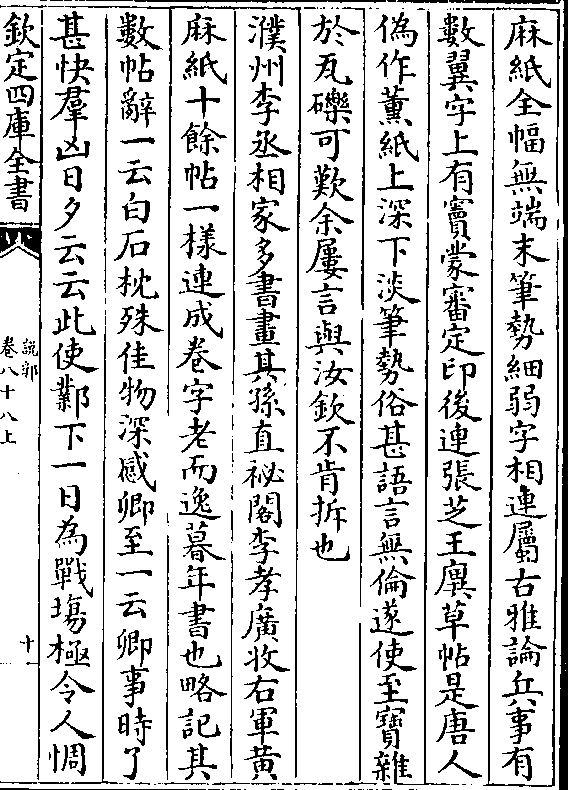 麻紙全幅無端末筆勢細弱字相連屬古雅論兵事有
數翼字上有竇蒙審定印後連張芝王廙草帖是唐人
偽作薰紙上深下淡筆勢俗甚語言無倫遂使至寶雜
於瓦礫可歎余屢言與汝欽不肯拆也
濮州李丞相家多書畫其孫直祕閣李孝廣收右軍黄
麻紙十餘帖一様連成卷字老而逸暮年書也略記其
數帖辭一云白石枕殊佳物深感卿至一云卿事時了
甚快羣凶日夕云云此使鄴下一日為戰塲極令人惆
欽定四庫全書
說郛
卷八十八上
十